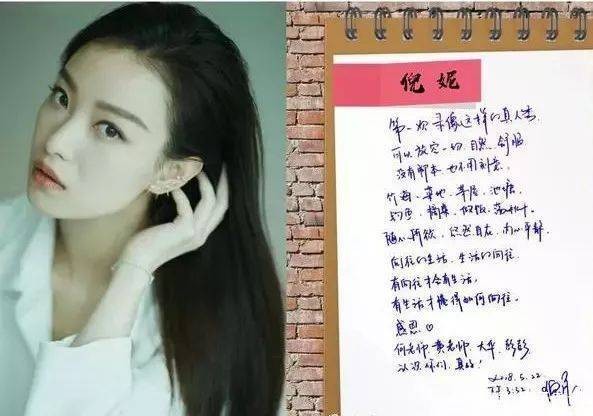 倪妮
第一次录像这样的真人秀
可以放空一切,自然,舒服
没有脚本 也不用刻意,
竹海,菜地,茅屋,池塘
摘菜,做饭,荡秋千,
随心所欲,悠然自在,内心平静
向往的生活,生活的向往
有向往才会有生活,
有生活才懂得如何向往.
感恩♡
何老师,黄老师,大华,彭彭
认识你们,真好!
2018.5.22
3:52.